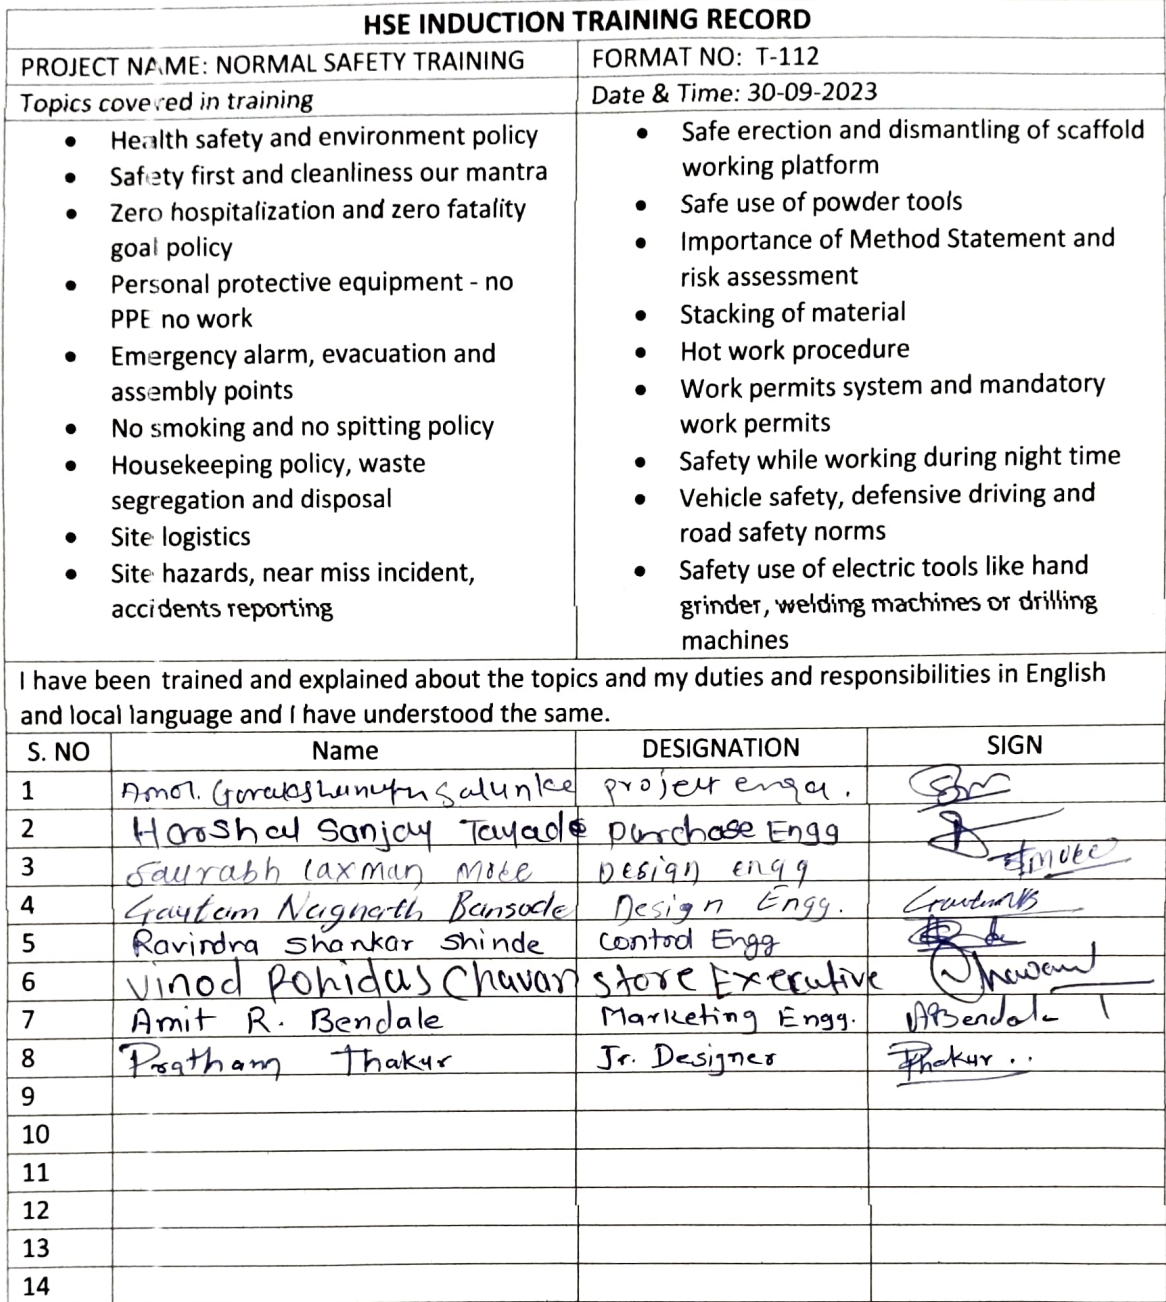 HSE INDUCTION TRAINING RECORD
PROJECT NAME: NORMAL SAFETY TRAINING
FORMAT NO: T-112
Topics covered in training
Date & Time: 30-09-2023
• Health safety and environment policy
• Safety first and cleanliness our mantra
• Zero hospitalization and zero fatality
goal policy
• Personal protective equipment - no
PPE no work
• Emergency alarm, evacuation and
assembly points
• No smoking and no spitting policy
• Housekeeping policy, waste
segregation and disposal
• Site logistics
• Site hazards, near miss incident,
accidents reporting
• Safe erection and dismantling of scaffold
working platform
• Safe use of powder tools
• Importance of Method Statement and
risk assessment
• Stacking of material
• Hot work procedure
• Work permits system and mandatory
work permits
• Safety while working during night time
• Vehicle safety, defensive driving and
road safety norms
• Safety use of electric tools like hand
grinder, welding machines or drilling
machines
I have been trained and explained about the topics and my duties and responsibilities in English
and local language and I have understood the same.
S. NO Name DESIGNATION SIGN
1 Amol. Salunke project
2 Harshal Sanjay Tayade purchase Engg
3 Saurabh Laxman Mote Design engg Mote
4 Gautam Nagnath Bansode Design Engg.
5 Ravindra Shankar Shinde Control Engg
6 Vinod Rohidas Chavan Store Executive Chavan
7 Amit R. Bendale Marketing Engg. ABendale
8 Pratham Thakur Jr. Designer Thakur
9
10
11
12
13
14